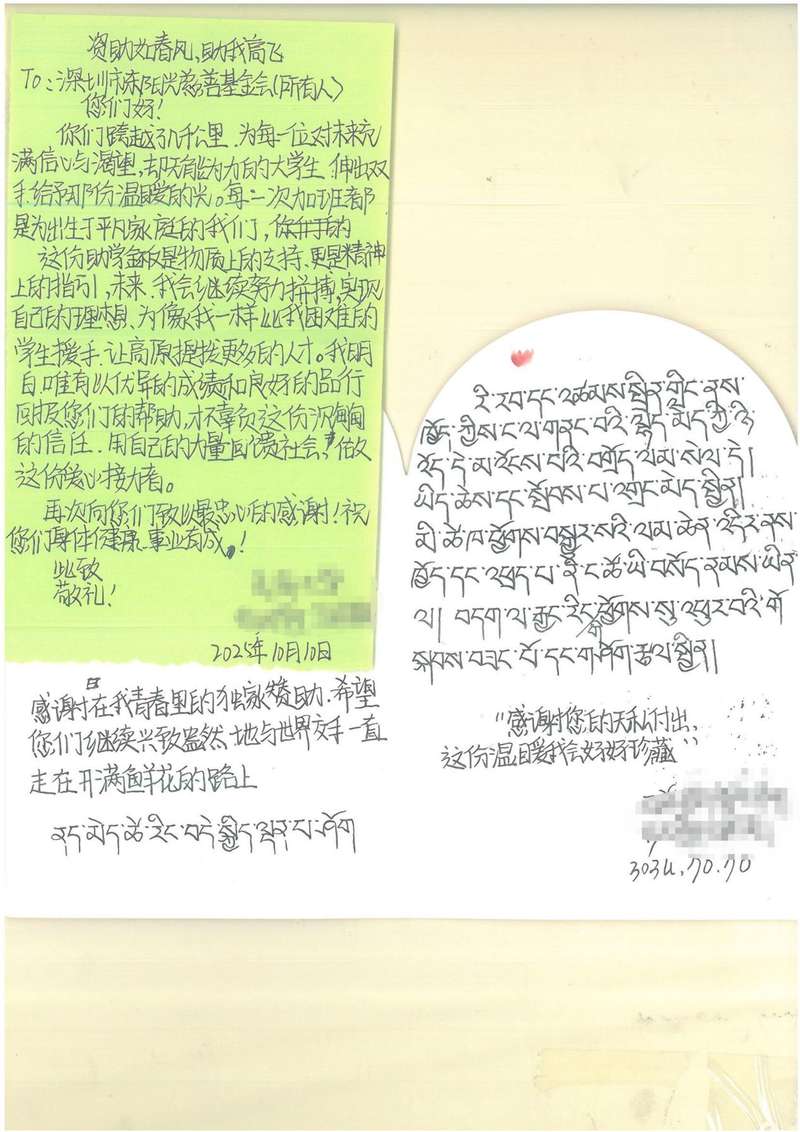 资助如春风,助我高飞
To:深圳市东阳光慈善基金会(所有人)
您们好!
你们跨越了几千公里.为每一位对未来充
满信心与渴望,却无能为力的大学生.伸出双
手.给予那份温暖的光。每一次加班都
是为出生于平凡家庭的我们,
这份助学金不仅是物质上的支持.更是精神
上的指引,未来.我会继续努力拼搏,实现
自己的理想.为像我一样比我困难的
学生援手.让高原提拔更多的人才。我明
白.唯有以优异的成绩和良好的品行
回报您们的帮助.才不辜负这份沉甸甸
的信任.用自己的力量回馈社会,做
这份爱心接力者。
再次向您们致以最忠心的感谢!祝
您们身体健康.事业有成。!
此致
敬礼!
2025年10月10日
感谢在我青春里的独家赞助.希望
您们继续兴致盎然地与世界交手一直
走在开满鲜花的路上
ནད་མེད་ཚེ་རིང་བདེ་སྐྱིད་ལྡན་པ་ཤོག
རི་རབ་དང་མཚམས་སྤྲིན་གླིང་ནས་
ཁྱོད་ཀྱིས་ང་ལ་གནང་བའི་
འོད་དེ་མ་འོངས་པའི་བགྲོད་ལམ་སེལ་དེ།
ཡིད་ཆེས་དང་སྤོབས་པ་འགྲང་མེད་སྤྱིན།
མི་ཚེ་ཁ་ཕྱོགས་བསྒྱུར་སའི་ལམ་ཆེན་འདིར་ནས་
ཁྱོད་དང་འཕྲད་པ་ནི་ང་ཚོ་ཡི་བསོད་ནམས་ཡིན་
ལ། བདག་ལ་རྒྱང་རིང་ཕྱོགས་སུ་འཕུར་བའི་གོ་
སྐབས་བཟང་པོ་དང་གཤོག་རྩལ་སྤྱིན།
“感谢您的无私付出,
这份温暖我会好好珍藏”